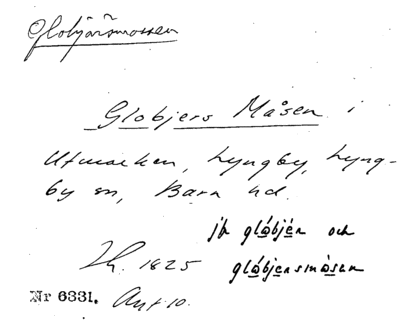 Globjärsmossen
Globjers Måsen i
Utmarken, Lyngby, Lyng-
by sn, Bara hd.
jb glåbjèn och
1825 glåbjensmåsen
Nr 6331.